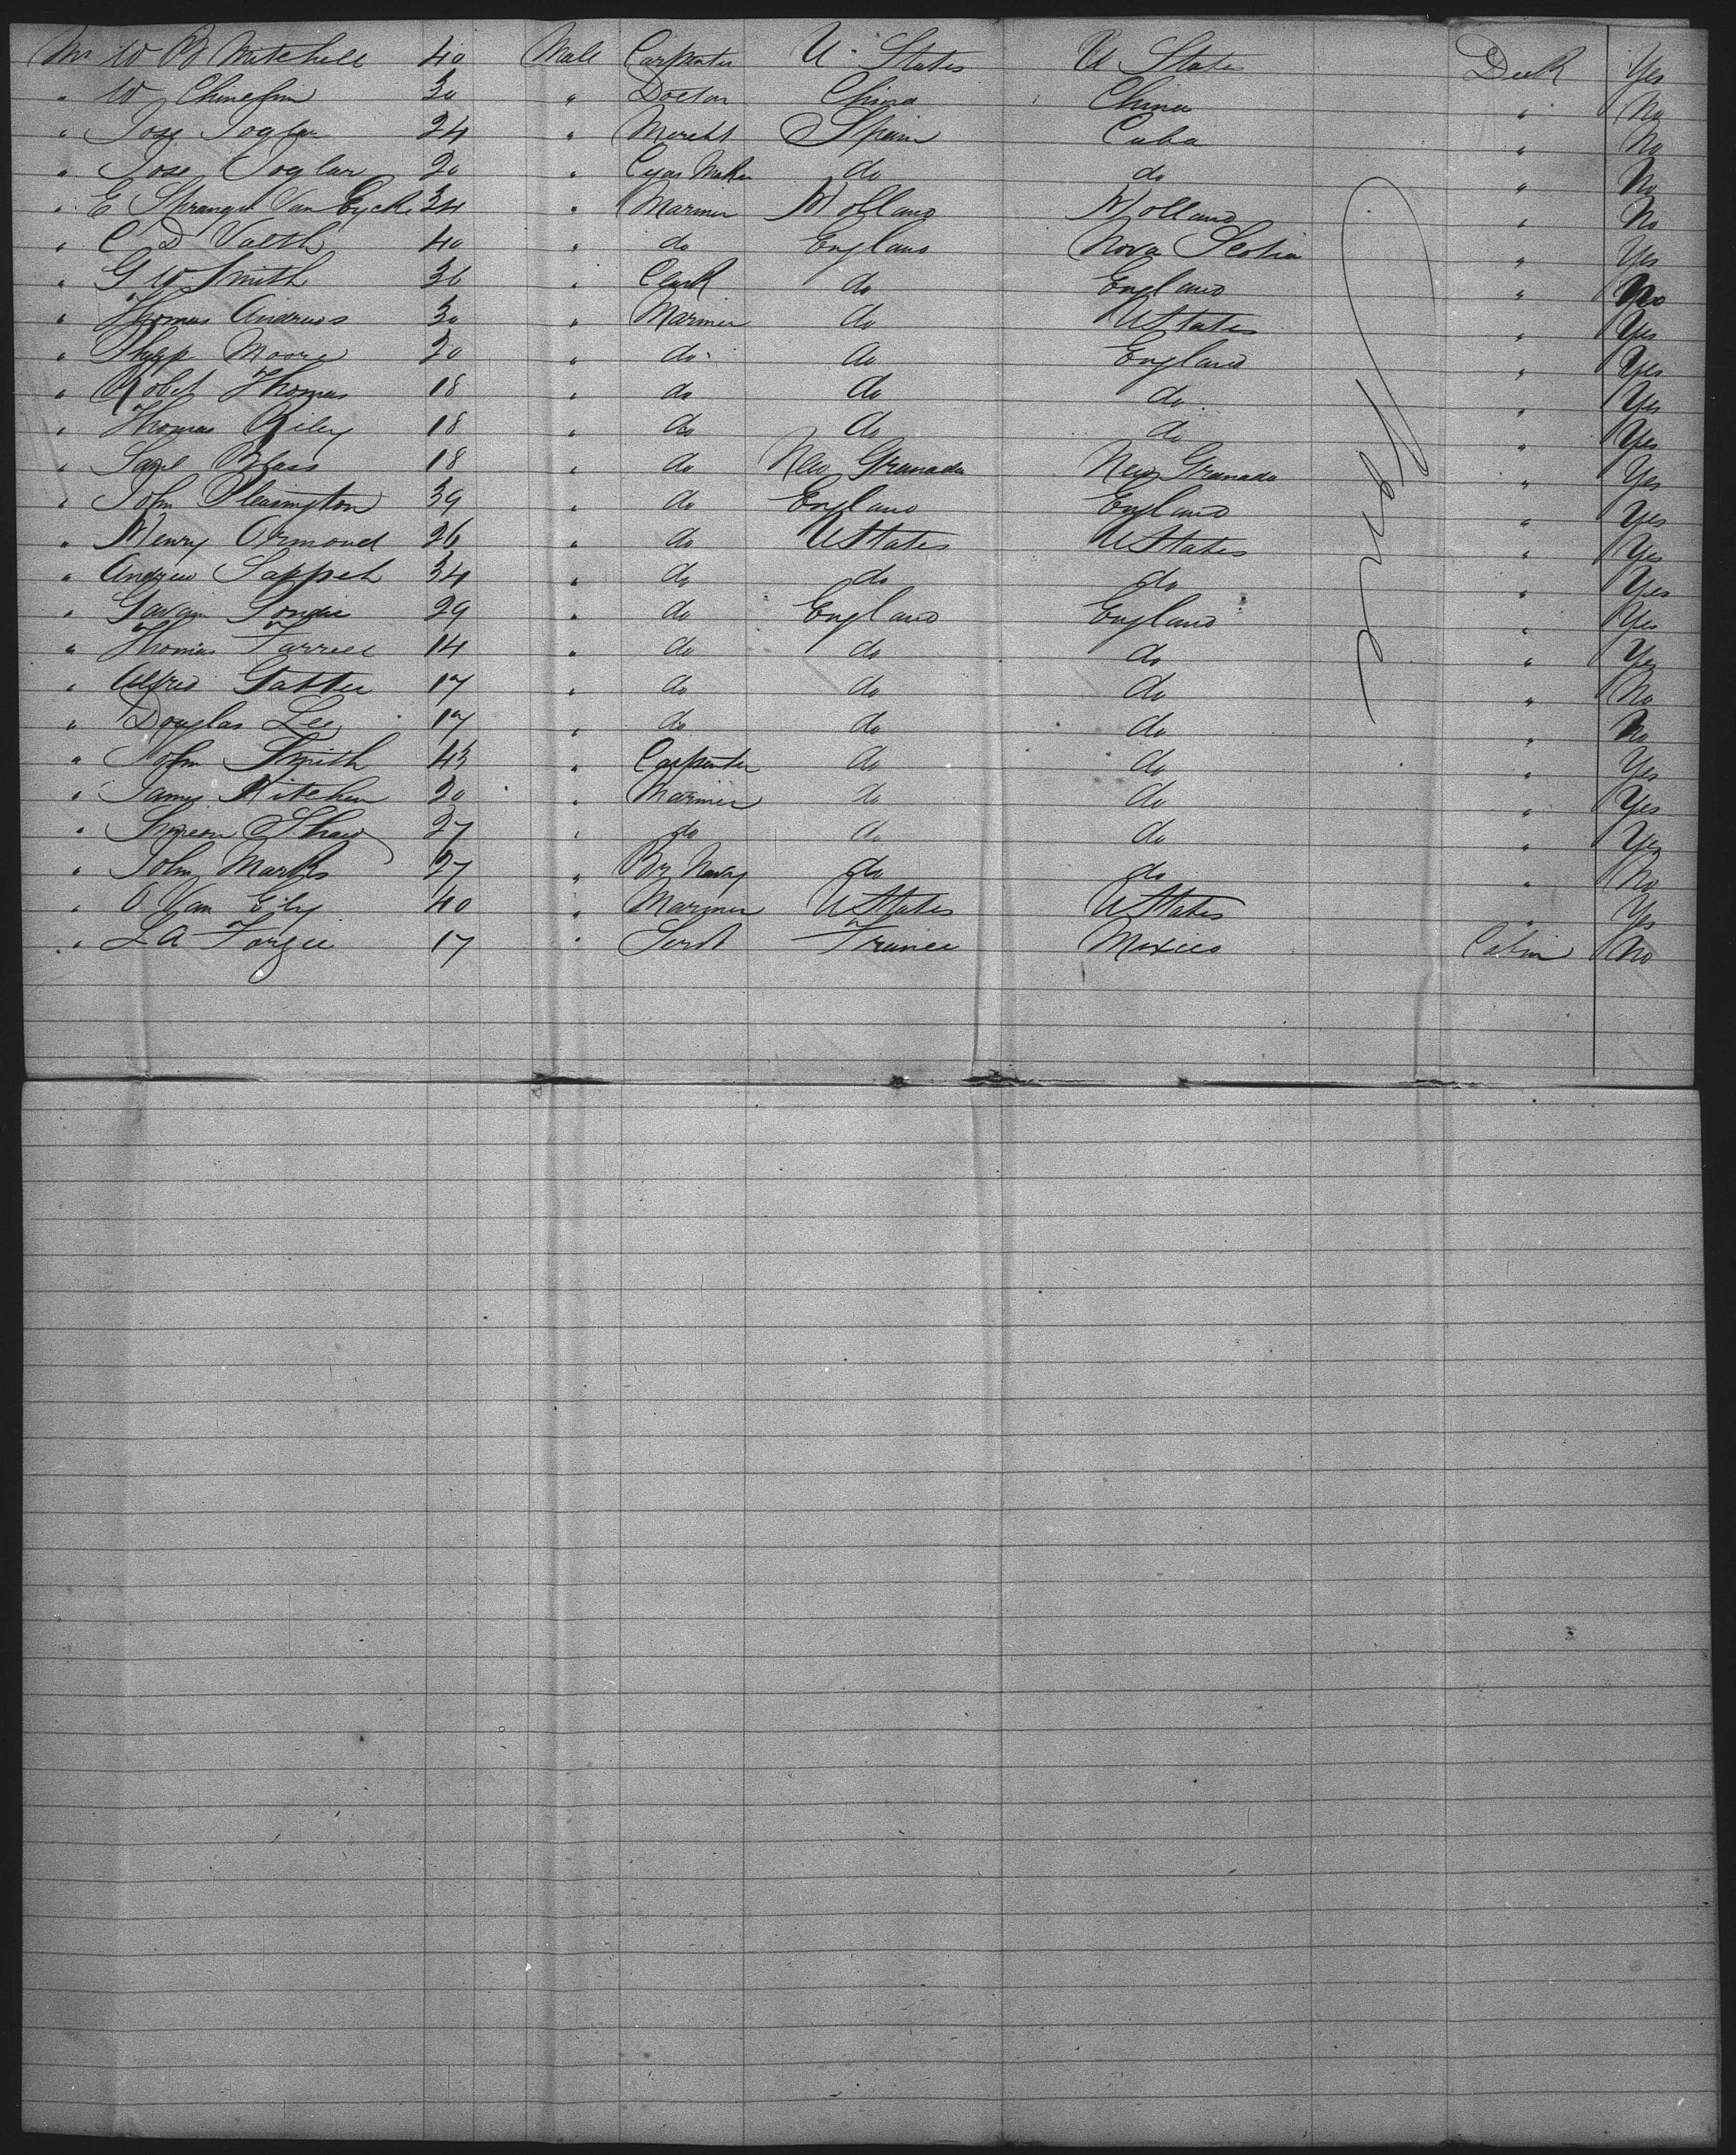 Mr W B Mitchell 40 Male Carpenter U. States U States Deck Yes
" W Chinefin 30 " Doctor China China " No
" Jose Toglar 24 " Mercht Spain Cuba " No
" Jose Toglar 20 " Cigar Maker do do " No
" E Van Eycke 34 " Mariner Holland Holland " No
" C D Valth 40 " do England Nova Scotia " Yes
" G W Smith 36 " Clerk do England " No
" Thomas Andrews 30 " Mariner do UStates " Yes
" Phillip Moore 20 " do do England " Yes
" Robet Thomas 18 " do do do " Yes
" Thomas Riley 18 " do do do " Yes
" Saml Blass 18 " do New Granada New Granada " Yes
" John Pleasington 39 " do England England " Yes
" Henry Ormond 26 " do UStates UStates " Yes
" Andrew Sappet 34 " do do do " Yes
" Gavain 29 " do England England " Yes
" Thomas Farrell 14 " do do do " Yes
" Alfred Gatter 17 " do do do " No
" Douglas Lee 17 " do do do " No
" John Smith 43 " Carpenter do do " Yes
" James Kitchen 20 " Mariner do do " Yes
" Simeon Shaw 27 " do do do " Yes
" John Marks 27 " Br Navy do do " No
" O Van Eily 40 " Mariner UStates UStates " Yes
" L A Forgee 17 " Servt France Mexico Cabin No
None